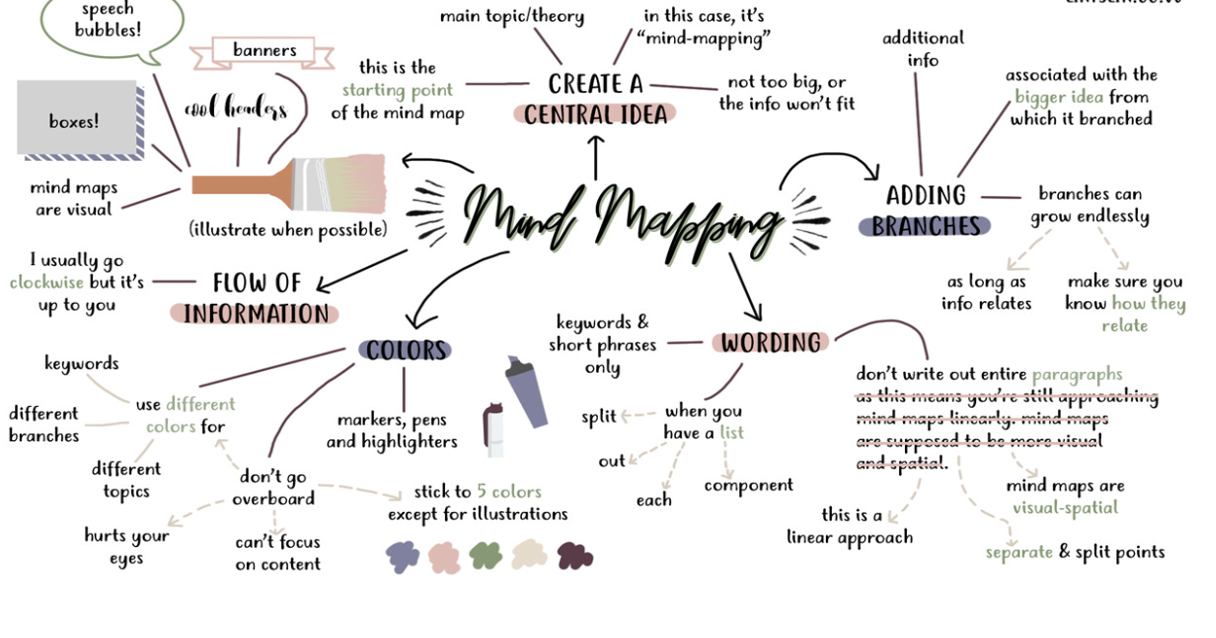 speech
bubbles!
banners
cool headers
boxes!
mind maps
are visual
(illustrate when possible)
main topic/theory
in this case, it's
"mind-mapping"
this is the
starting point
of the mind map
CREATE A
CENTRAL IDEA
not too big, or
the info won't fit
additional
info
associated with the
bigger idea from
which it branched
ADDING
BRANCHES
branches can
grow endlessly
as long as
info relates
make sure you
know how they
relate
Mind Mapping
I usually go
clockwise but it's
up to you
FLOW OF
INFORMATION
COLORS
keywords
different
branches
use different
colors for
different
topics
markers, pens
and highlighters
don't go
overboard
hurts your
eyes
can't focus
on content
stick to 5 colors
except for illustrations
WORDING
keywords &
short phrases
only
when you
have a list
split
out
each
component
don't write out entire paragraphs
as this means you're still approaching
mind maps linearly. mind maps
are supposed to be more visual
and spatial.
this is a
linear approach
mind maps are
visual-spatial
separate & split points